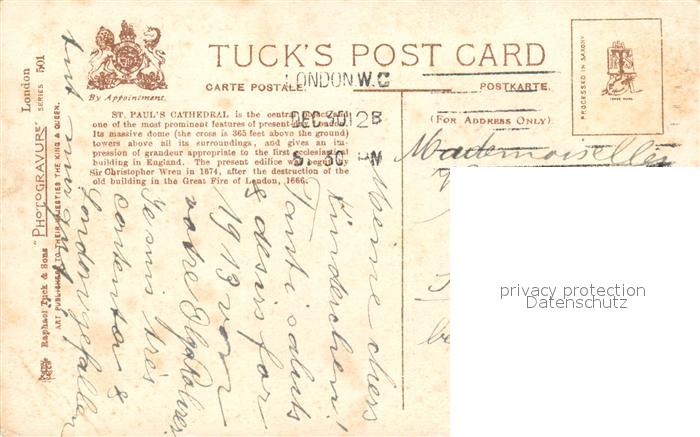 TUCK'S POST CARD
By Appointment.
CARTE POSTALE.
POSTKARTE.
(FOR ADDRESS ONLY)
PROCESSED IN SAXONY
TRADE MARK
LONDON. W.C
DEC 30 12 B
5. 30 PM
ST. PAUL'S CATHEDRAL is the central object and
one of the most prominent features of present-day London.
Its massive dome (the cross is 365 feet above the ground)
towers above all its surroundings, and gives an im-
pression of grandeur appropriate to the first ecclesiastical
building in England. The present edifice was begun by
Sir Christopher Wren in 1674, after the destruction of the
old building in the Great Fire of London, 1666.
London
SERIES 501
"PHOTOGRAVURE"
Raphael Tuck & Sons
ART PUBLISHERS TO THEIR MAJESTIES THE KING & QUEEN.
Mademoiselles
Meine chers
Kinderchen!
Tants saluts
& desirs for
1913 von
votre Olga
Je suis très
contenta &
London gefallen
tut mungut
privacy protection
Datenschutz